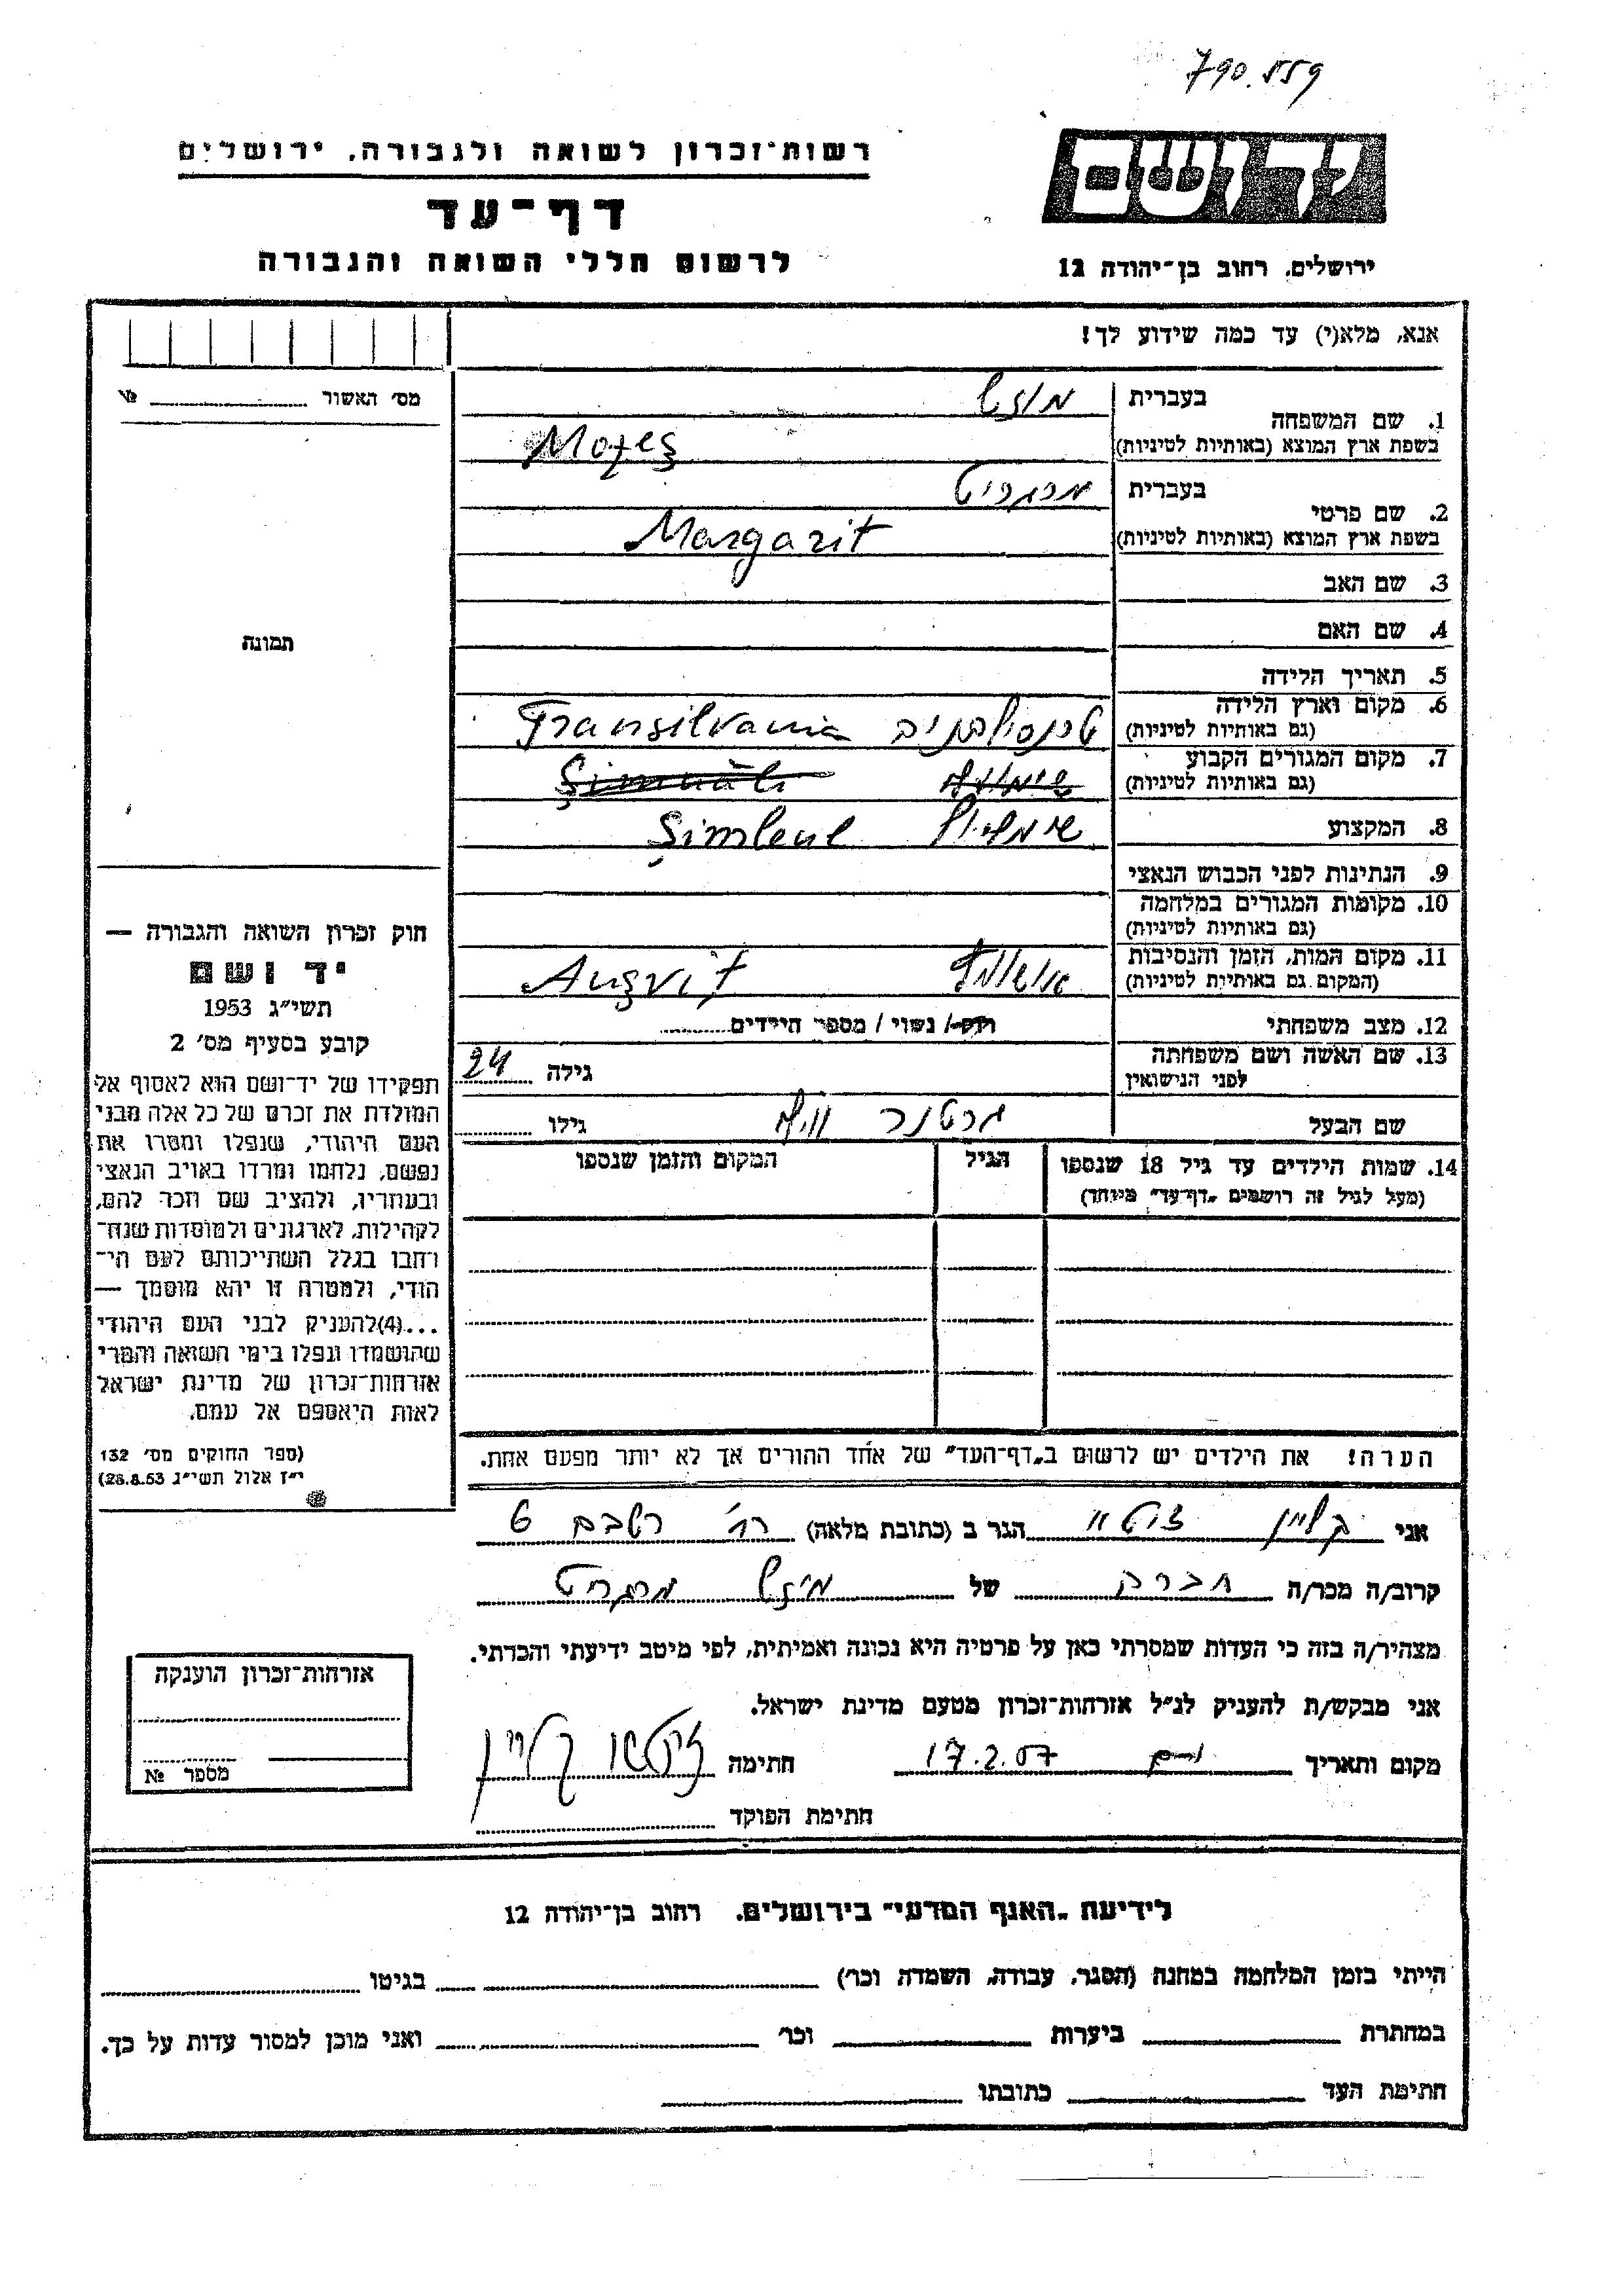 790.559
רשות־זכרון לשואה ולגבורה, ירושלים
דף־עד
לרשום חללי השואה והגבורה
יד ושם
ירושלים, רחוב בן־יהודה 12
אנא, מלא(י) עד כמה שידוע לך!
מס׳ האשור № 
תמונה
1. שם המשפחה בעברית מוזש
בשפת ארץ המוצא (באותיות לטיניות) Mozeş
2. שם פרטי בעברית מרגריט
בשפת ארץ המוצא (באותיות לטיניות) Margarit
3. שם האב
4. שם האם
5. תאריך הלידה
6. מקום וארץ הלידה
(גם באותיות לטיניות) טרנסילבניה Transilvania
7. מקום המגורים הקבוע
(גם באותיות לטיניות)
8. המקצוע Şimleul
9. הנתינות לפני הכבוש הנאצי
10. מקומות המגורים במלחמה
(גם באותיות לטיניות)
11. מקום המות, הזמן והנסיבות
(המקום גם באותיות לטיניות) Auşviţ
12. מצב משפחתי רווק / נשוי / מספר הילדים
13. שם האשה ושם משפחתה
לפני הנישואין גילה 24
שם הבעל גרטנר גילו
14. שמות הילדים עד גיל 18 שנספו הגיל המקום והזמן שנספו
(מעל לגיל זה רושמים „דף־עד״ מיוחד)
הערה! את הילדים יש לרשום ב„דף־העד״ של אחד ההורים אך לא יותר מפעם אחת.
חוק זכרון השואה והגבורה —
יד ושם
תשי״ג 1953
קובע בסעיף מס׳ 2
תפקידו של יד־ושם הוא לאסוף אל
המולדת את זכרם של כל אלה מבני
העם היהודי, שנפלו ומסרו את
נפשם, נלחמו ומרדו באויב הנאצי
ובעוזריו, ולהציב שם וזכר להם,
לקהילות, לארגונים ולמוסדות שנח־
רבו בגלל השתייכותם לעם הי־
הודי, ולמטרה זו יהא מוסמך —
...(4)להעניק לבני העם היהודי
שהושמדו ונפלו בימי השואה והמרי
אזרחות־זכרון של מדינת ישראל
לאות היאספם אל עמם.
(ספר החוקים מס׳ 132
י״ז אלול תשי״ג 28.8.53)
אני קליין הגר ב (כתובת מלאה) רח׳ רשבם 6
קרוב/ה מכר/ה חברה של מוזש מרגריט
מצהיר/ה בזה כי העדות שמסרתי כאן על פרטיה היא נכונה ואמיתית, לפי מיטב ידיעתי והכרתי.
אני מבקש/ת להעניק לנ״ל אזרחות־זכרון מטעם מדינת ישראל.
מקום ותאריך 17.2.57 חתימה
חתימת הפוקד
אזרחות־זכרון הוענקה
מספר №
לידיעת „האגף המדעי״ בירושלים, רחוב בן־יהודה 12
הייתי בזמן המלחמה במחנה (הסגר, עבודה, השמדה וכר׳) בגיטו
במחתרת ביערות וכר׳ ואני מוכן למסור עדות על כך.
חתימת העד כתובתו